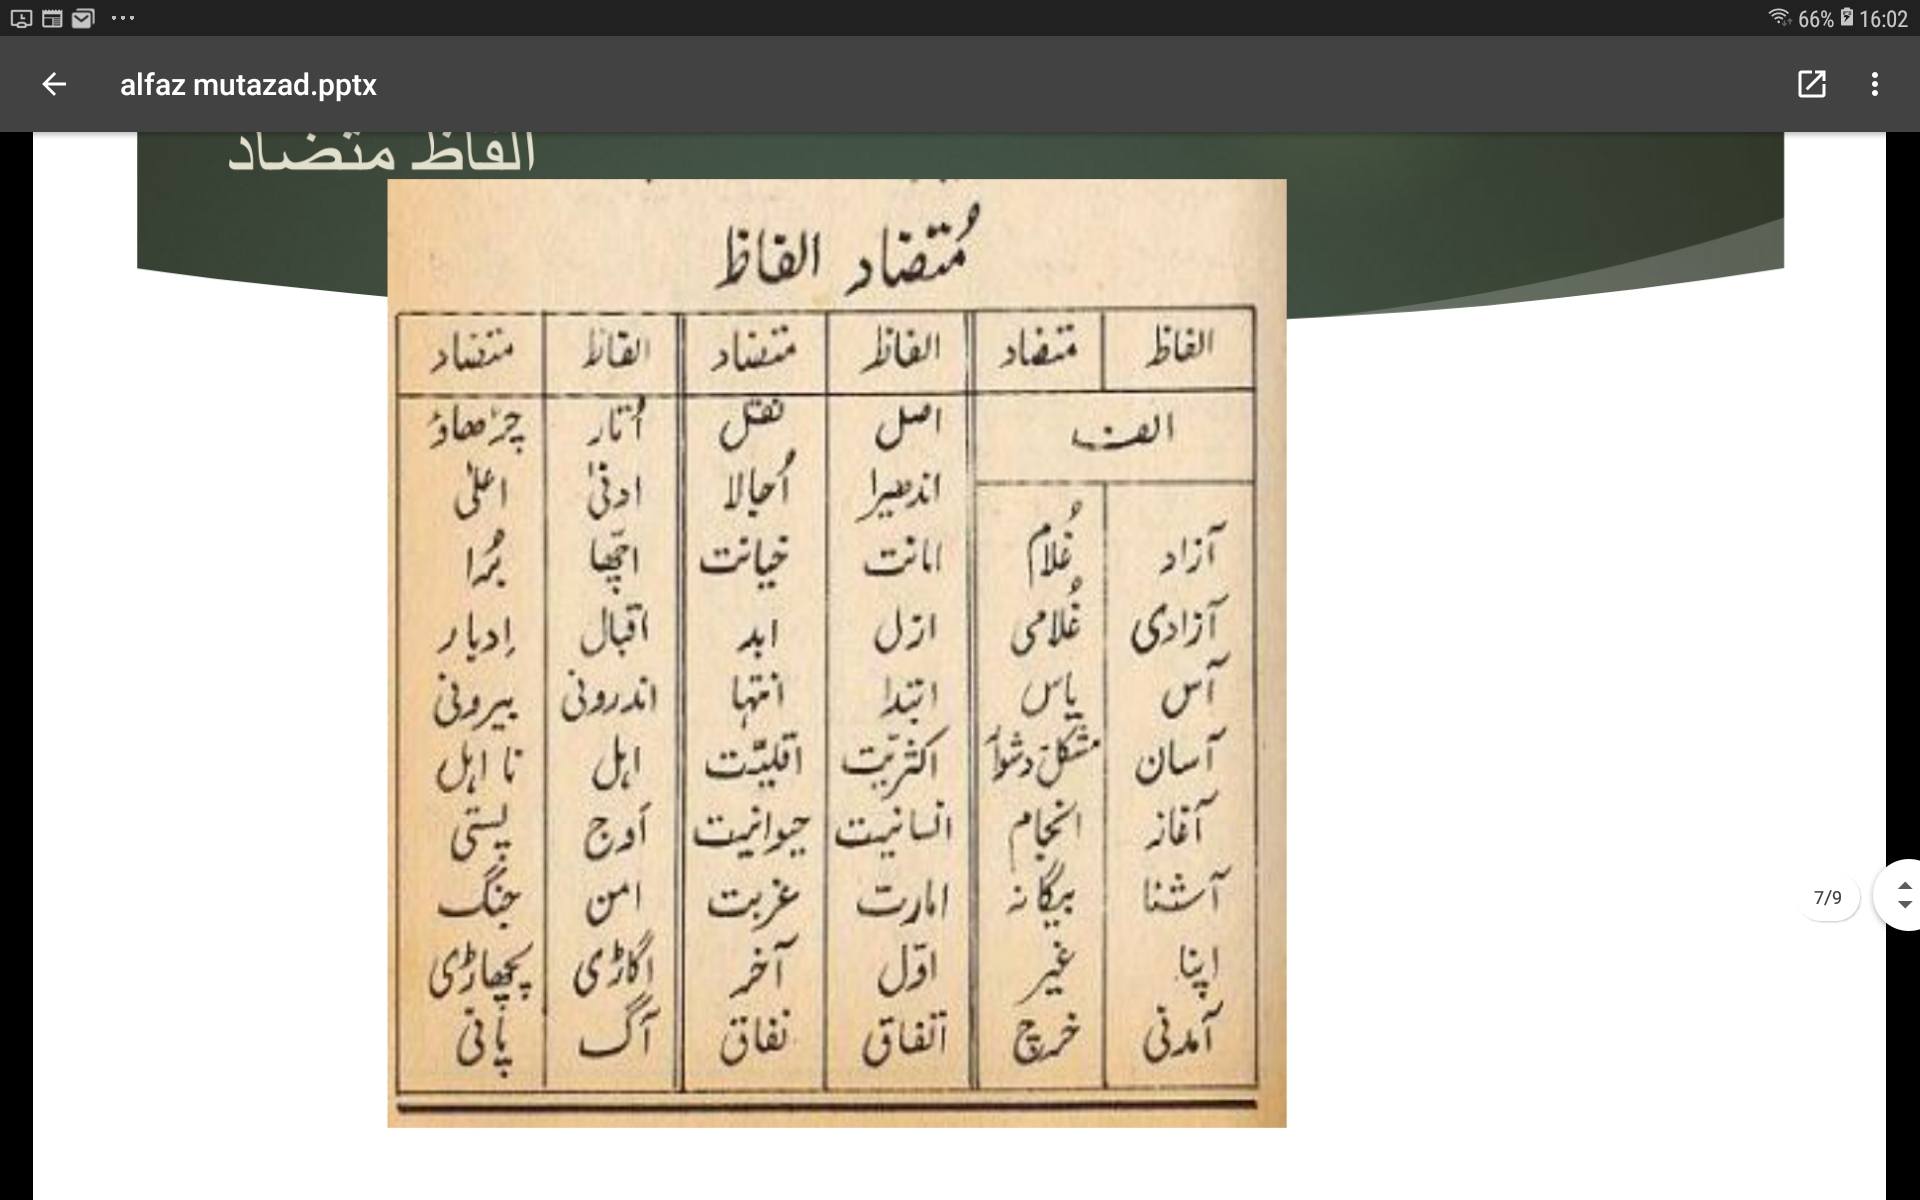 66% 16:02
alfaz mutazad.pptx
الفاظ متضاد
مُتضاد الفاظ
الفاظ متضاد الفاظ متضاد الفاظ متضاد
الف اصل نقل اُتار چڑھاؤ
اندھیرا اُجالا ادنیٰ اعلیٰ
آزاد غُلام امانت خیانت اچّھا بُرا
آزادی غُلامی ازل ابد اقبال اِدبار
آس یاس ابتدا انتہا اندرونی بیرونی
آسان مشکل، دشوار اکثریّت اقلیّت اہل نا اہل
آغاز انجام انسانیت حیوانیت اَوج پستی
آشنا بیگانہ امارت غربت امن جنگ
اپنا غیر اوّل آخر اگاڑی پچھاڑی
آمدنی خرچ اتفاق نفاق آگ پانی
7/9